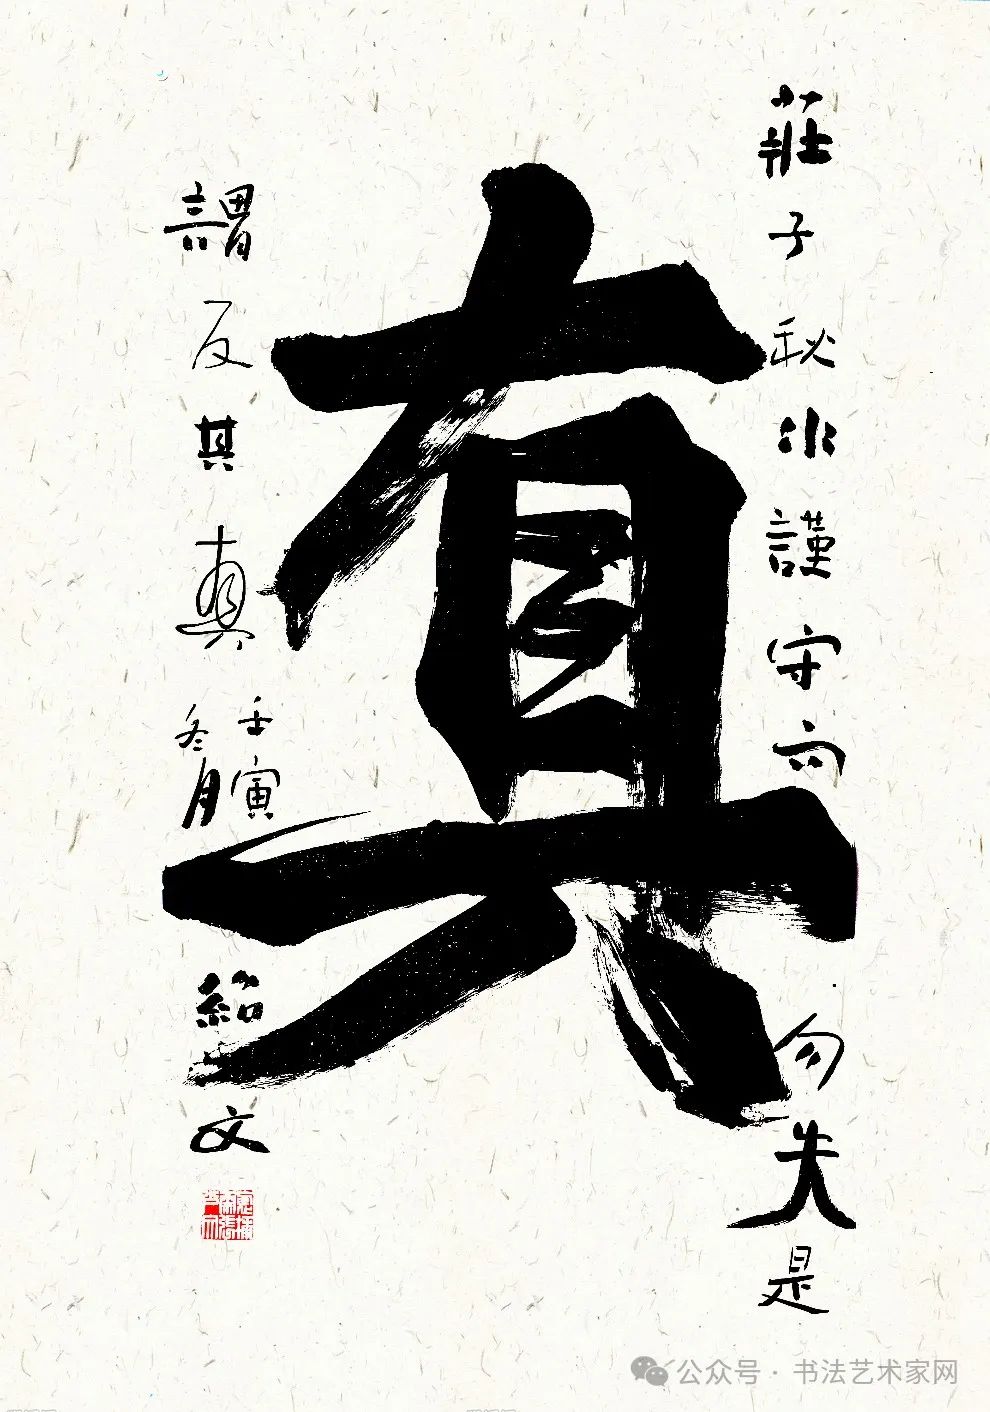 真
莊子秋水謹守而勿失是
謂反其真
壬寅
冬月
紹文
公众号 · 书法艺术家网